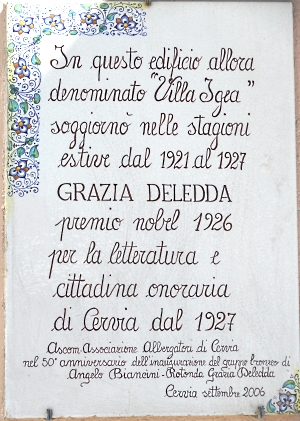 In questo edificio allora
denominato "Villa Igea"
soggiornò nelle stagioni
estive dal 1921 al 1927
GRAZIA DELEDDA
premio nobel 1926
per la letteratura e
cittadina onoraria
di Cervia dal 1927
Ascom-Associazione Albergatori di Cervia
nel 50° anniversario dell'inaugurazione del gruppo bronzeo di
Angelo Biancini-Rotonda Grazia Deledda
Cervia settembre 2006